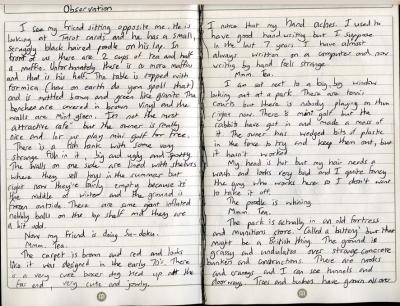 Observation
I see my friend sitting opposite me. He is
looking at Tarot cards and he has a small,
scraggly black haired poodle on his lap. In
front of us there are 2 cups of tea and half
a muffin. Unfortunately there is no more muffin
and that is his half. The table is topped with
formica (how on earth do you spell that)
and is mottled brown and green like granite. The
benches are covered in brown vinyl and the
walls are mint green. Its not the most
attractive cafe but the owner is really
nice and let us play mini golf for free.
There is a fish tank with some very
strange fish in it, big and ugly and spotty
The walls on one side are lined with shelves
where they sell toys in the summer but
right now they're fairly empty because its
the middle of winter and the ground is
frozen outside. There are some giant inflated
nobbly balls on the top shelf and they are
a bit odd.
Now my friend is doing Su-doku.
Mmm. Tea.
The carpet is brown and red and looks
like it was designed in the early 70's. There
is a very cute boxer dog tied up at the
far end, very cute and jowly.
I notice that my hand aches. I used to
have good handwriting but I suppose
in the last 7 years I have almost
always written on a computer and now
writing by hand feels strange.
Mmm. Tea.
I am sat next to a big, big window
looking out at a park. There are tennis
courts but there is nobody playing on them
right now. There is mini golf but the
rabbits have got in and made a mess of
it. The owner has wedged bits of plastic
in the fence to try and keep them out, but
it hasn't worked.
My head is hot but my hair needs a
wash and looks very bad and I quite fancy
the guy who works here so I don't want
to take it off.
The poodle is whining.
Mmm. Tea.
The park is actually in an old fortress
and munitions store. Called a "battery" but that
might be a British thing. The ground is
grassy and undulates over strange concrete
bunkers and constructions. There are nooks
and crannys and I can see tunnels and
doorways. Trees and bushes have grown all over